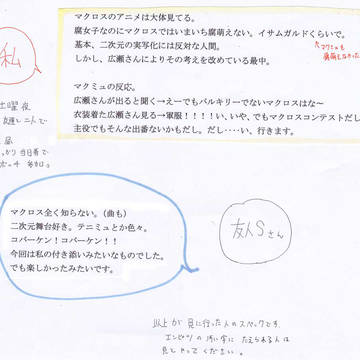 マクロスのアニメは大体見てる。
腐女子なのにマクロスではいまいち腐萌えない。イサムガルドくらいで。
基本、二次元の実写化には反対な人間。
しかし、広瀬さんによりその考えを改めている最中。
マクミュの反応。
広瀬さんが出ると聞く→えーでもバルキリーでないマクロスはな～
衣装着た広瀬さん見る→軍服!!!!い、いや、でもマクロスコンテストだし
主役でもそんな出番ないかもだし。だし‥‥い、行きます。
↑マクミュも
私
土曜夜
友達と二人で
昼
マクロス全く知らない。(曲も)
二次元舞台好き。テニミュとか色々。
コバーケン!コバーケン!!
今回は私の付き添いみたいなものでした。
でも楽しかったみたいです。
友人Sさん
以上が見に行った人のスペックです。
エンピツの汚い字に たえられる人は
見てやってください。